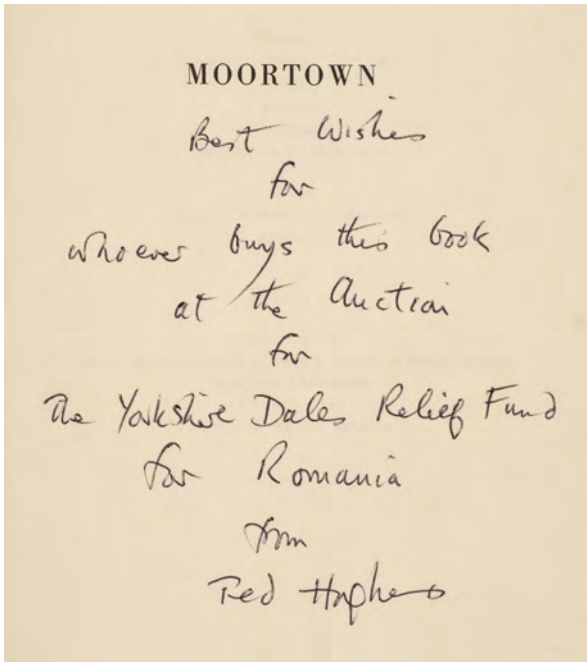 MOORTOWN
Best Wishes
for
whoever buys this book
at the Auction
for
The Yorkshire Dales Relief Fund
for Romania
from
Ted Hughes